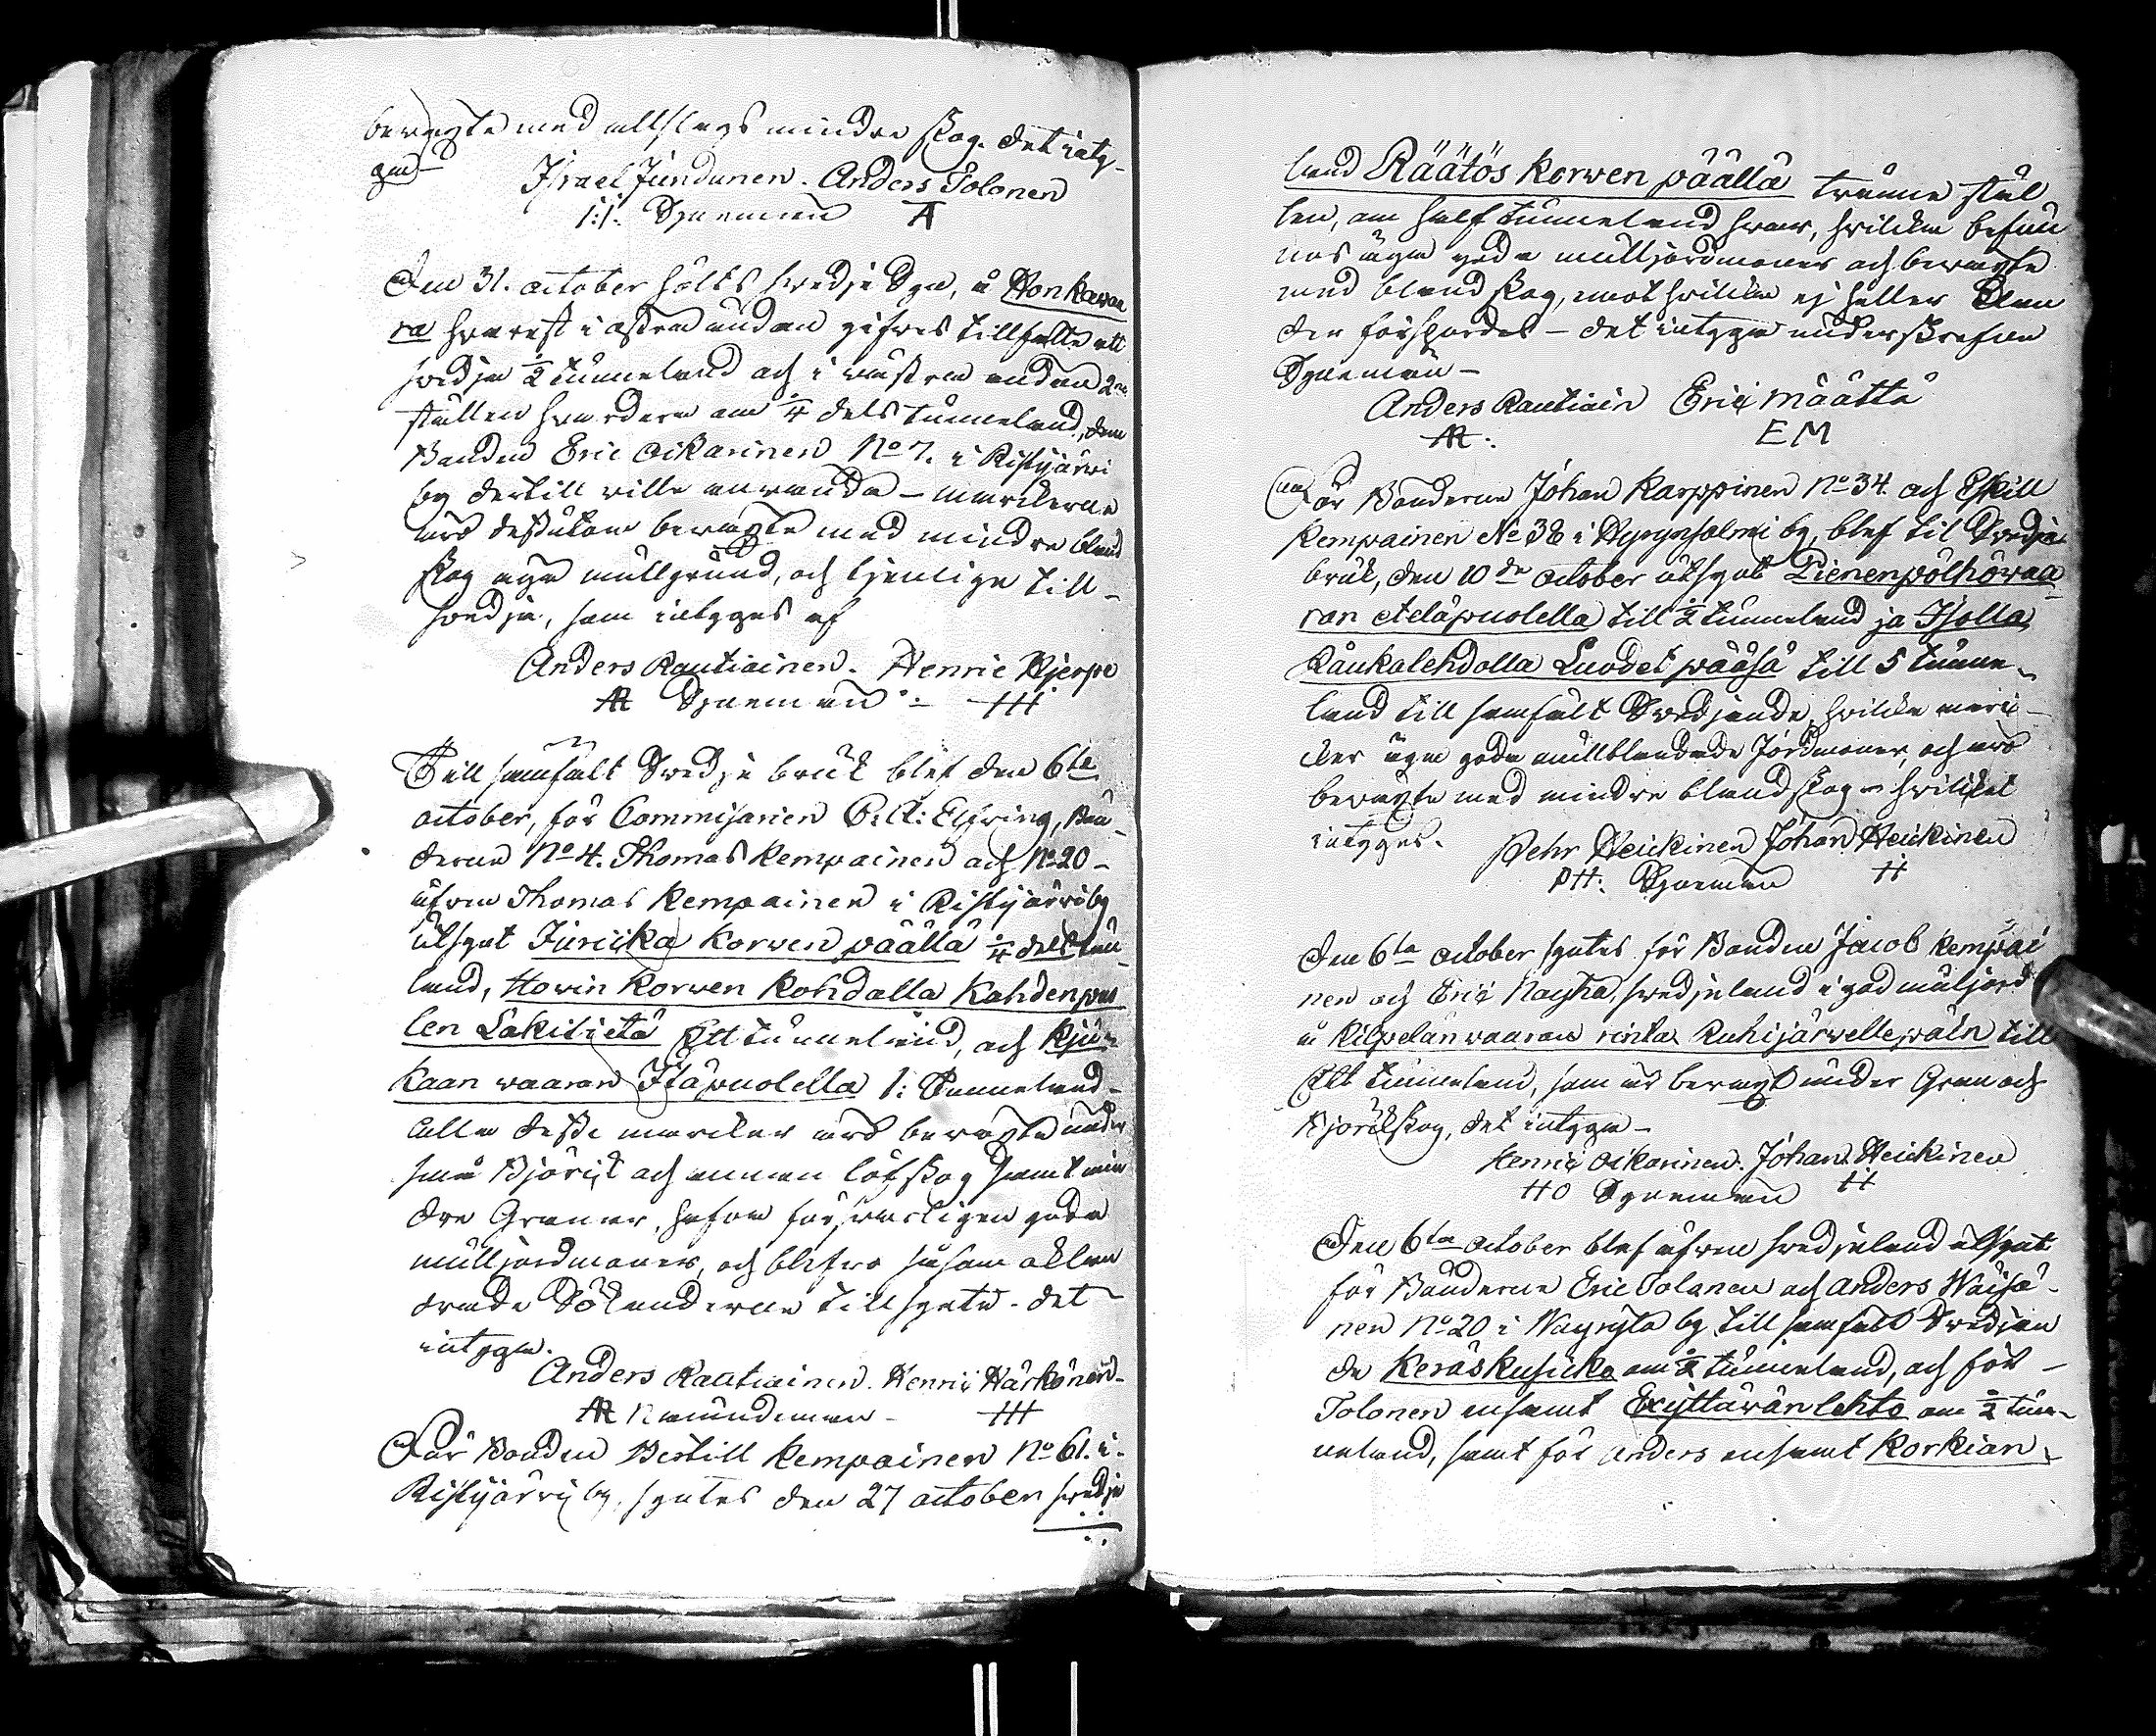 bewäxte med allslags mindre skog. det intÿ-
ga
Israel Jundunen. Anders Tolonen
I:I. Synemän A
Den 31. october hölts swedje Syn, å Honkawaa
ra hwarest i östra ändan gifwes tillfälle att
swedja ½ tunneland och i wästra ändan 2ne
ställen hwardera om ¼ dels tunneland, dem
Bonden Eric Oikarinen No 7. i Ristijärwi
by dertill wille anwända - marckerne
äro dessutom bewäxte med mindre bland
skog äga mullgrund, och tjenlige till-
swedje, som intygas af
Anders Rautiainen. Henric Hjerpe
AR Synemän :- HH
Till samfält Swedje bruk blef den 6te
october, för Commisarien Elfving, Bön-
derne No 4. Thomas Kempainen och No 20-
äfwen Thomas Kempainen i Ristijärwi by
utsynt Juricka Korwen päällä ¼ dels tun-
land, Howin Korwen Kohdalla Kahdenpuo
len Lakitietä Ett tunneland, och Kju-
kaan waaran Itäpuolella 1: Tunneland-
alla desse marcker äro bewäxte under
små Björck och annan löfskog samt min
dre Granar, hafwa förswarligen goda
mulljordmåner, och blefwo såsom oklan
drade Sökanderne tillsynte. det
intyga.
Anders Rautiainen. Henric Härkönen-
AR Nämndemän - HH
För Bonden Bertill Kempainen No 61. i-
Ristijärwi by, syntes den 27 october swedje
land Räätös korwen päällä tränne stäl
len, om half tunneland hwar, hwilka befun
nos äga goda mulljordmåner och bewäxte
med bland skog, emot hwilka ej heller klan
der förspordes - det intyga underskrefne
Synemän -
Anders Rautiain Eric Määttä
AR: EM
För Bönderne Johan Karppinen No 34. och Eskill
Kempainen No 38 i Hyrynsalmi by, blef til Swedje
bruk, den 10de october utsynt Pienenpölhöwaa
ran eteläpuolella till ½ tunneland ja Isolla
Raukalehdolla Luodet pääsä till 5 tunne-
land till samfält Swedjande, hwilka marc-
ker äga goda mullblandade Jordmåner, och äro
bewäxte med mindre blandskog - hwilcket
intygas. Pehr Heickinen Johan Heickinen
PH: Synemän H
Den 6ta october syntes för Bonden Jacob Kempai
nen och Eric Nayha, swedjeland i god muljord
å Kilpelänwaaran rinta Ruhijärwelle päin till
Ett tunneland, som är bewäxt under Gran och
Björckskog, det intyga -
Henric Oikarinen. Johan Heickinen
HO Synemän H
Den 6ta october blef äfwen swedjeland utsynt
för Bönderne Eric Tolanen och Anders Wäisä-
nen No 20 i Wayryla by till samfält Swedjan
de Keräskusicko om ½ tunneland, och för-
Tolonen ensamt Exyttäwänlehto om ½ tun-
neland, samt för Anders ensamt Korkian